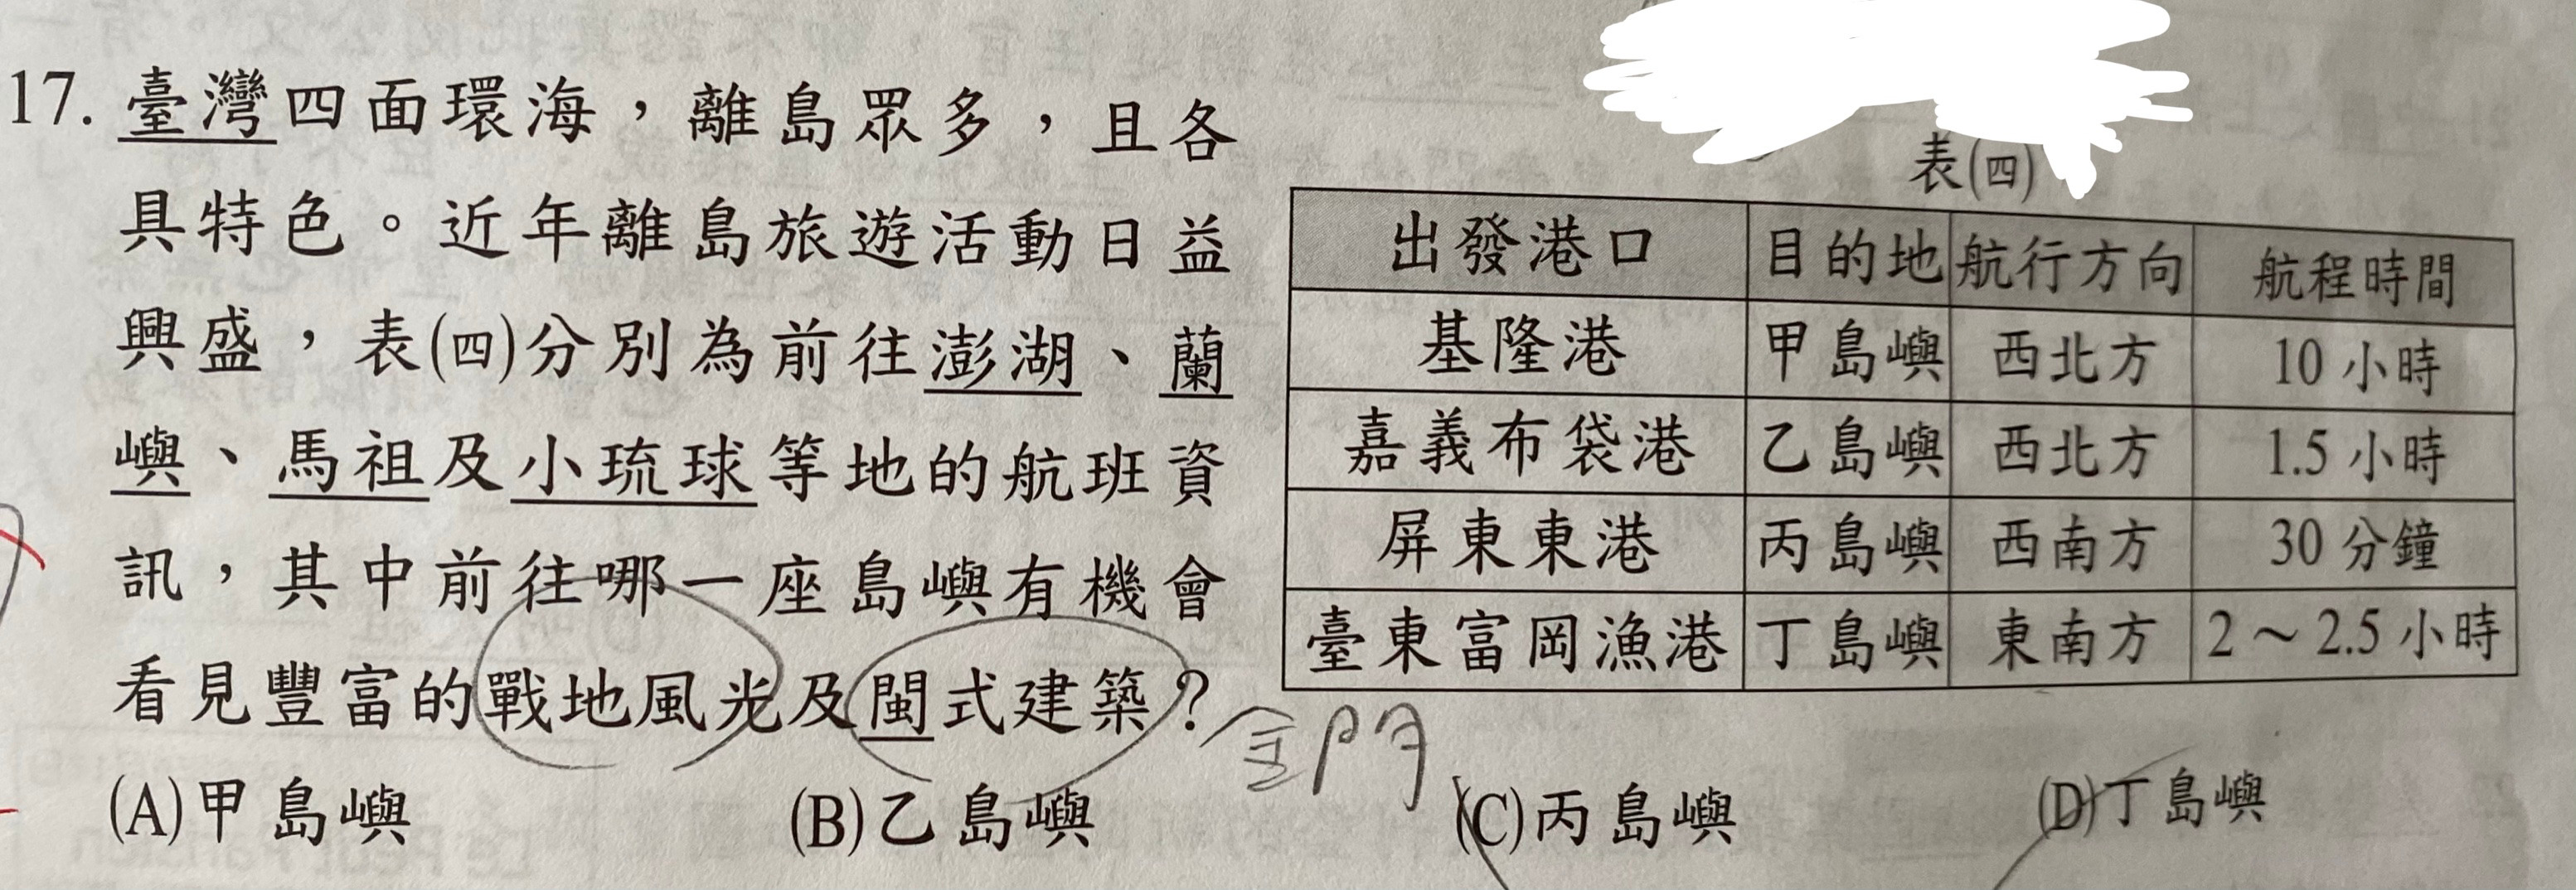 17. 臺灣四面環海，離島眾多，且各
具特色。近年離島旅遊活動日益
興盛，表(四)分別為前往澎湖、蘭
嶼、馬祖及小琉球等地的航班資
訊，其中前往哪一座島嶼有機會
看見豐富的戰地風光及閩式建築？
金門
表(四)
出發港口 目的地 航行方向 航程時間
基隆港 甲島嶼 西北方 10 小時
嘉義布袋港 乙島嶼 西北方 1.5 小時
屏東東港 丙島嶼 西南方 30 分鐘
臺東富岡漁港 丁島嶼 東南方 2～2.5 小時
(A)甲島嶼 (B)乙島嶼 (C)丙島嶼 (D)丁島嶼